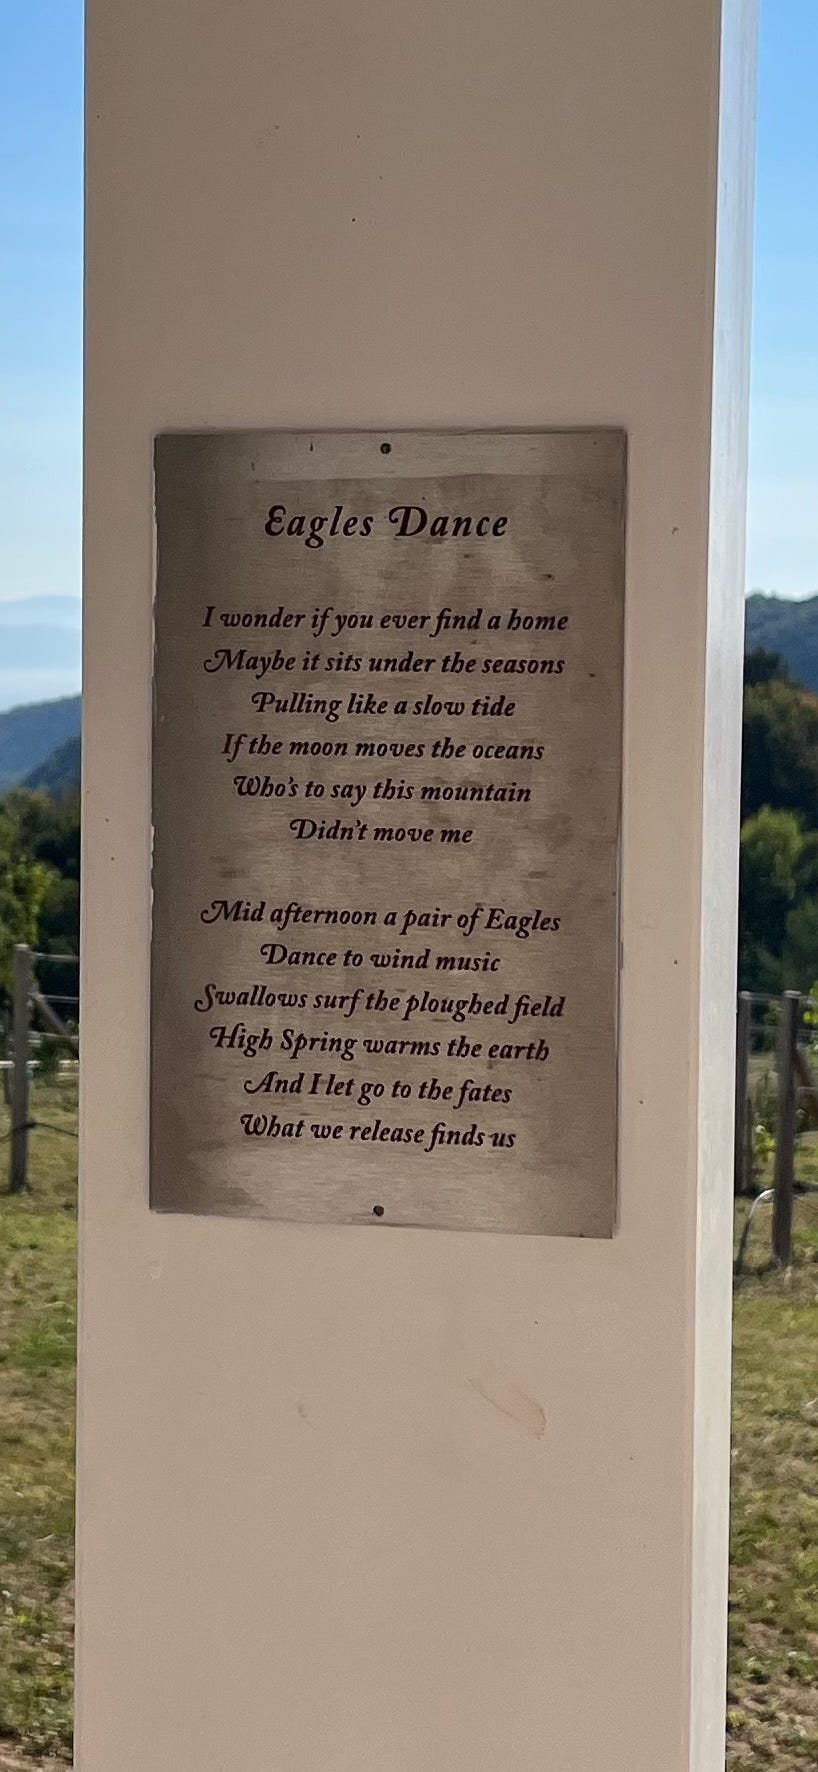 Eagles Dance
I wonder if you ever find a home
Maybe it sits under the seasons
Pulling like a slow tide
If the moon moves the oceans
Who's to say this mountain
Didn't move me
Mid afternoon a pair of Eagles
Dance to wind music
Swallows surf the ploughed field
High Spring warms the earth
And I let go to the fates
What we release finds us